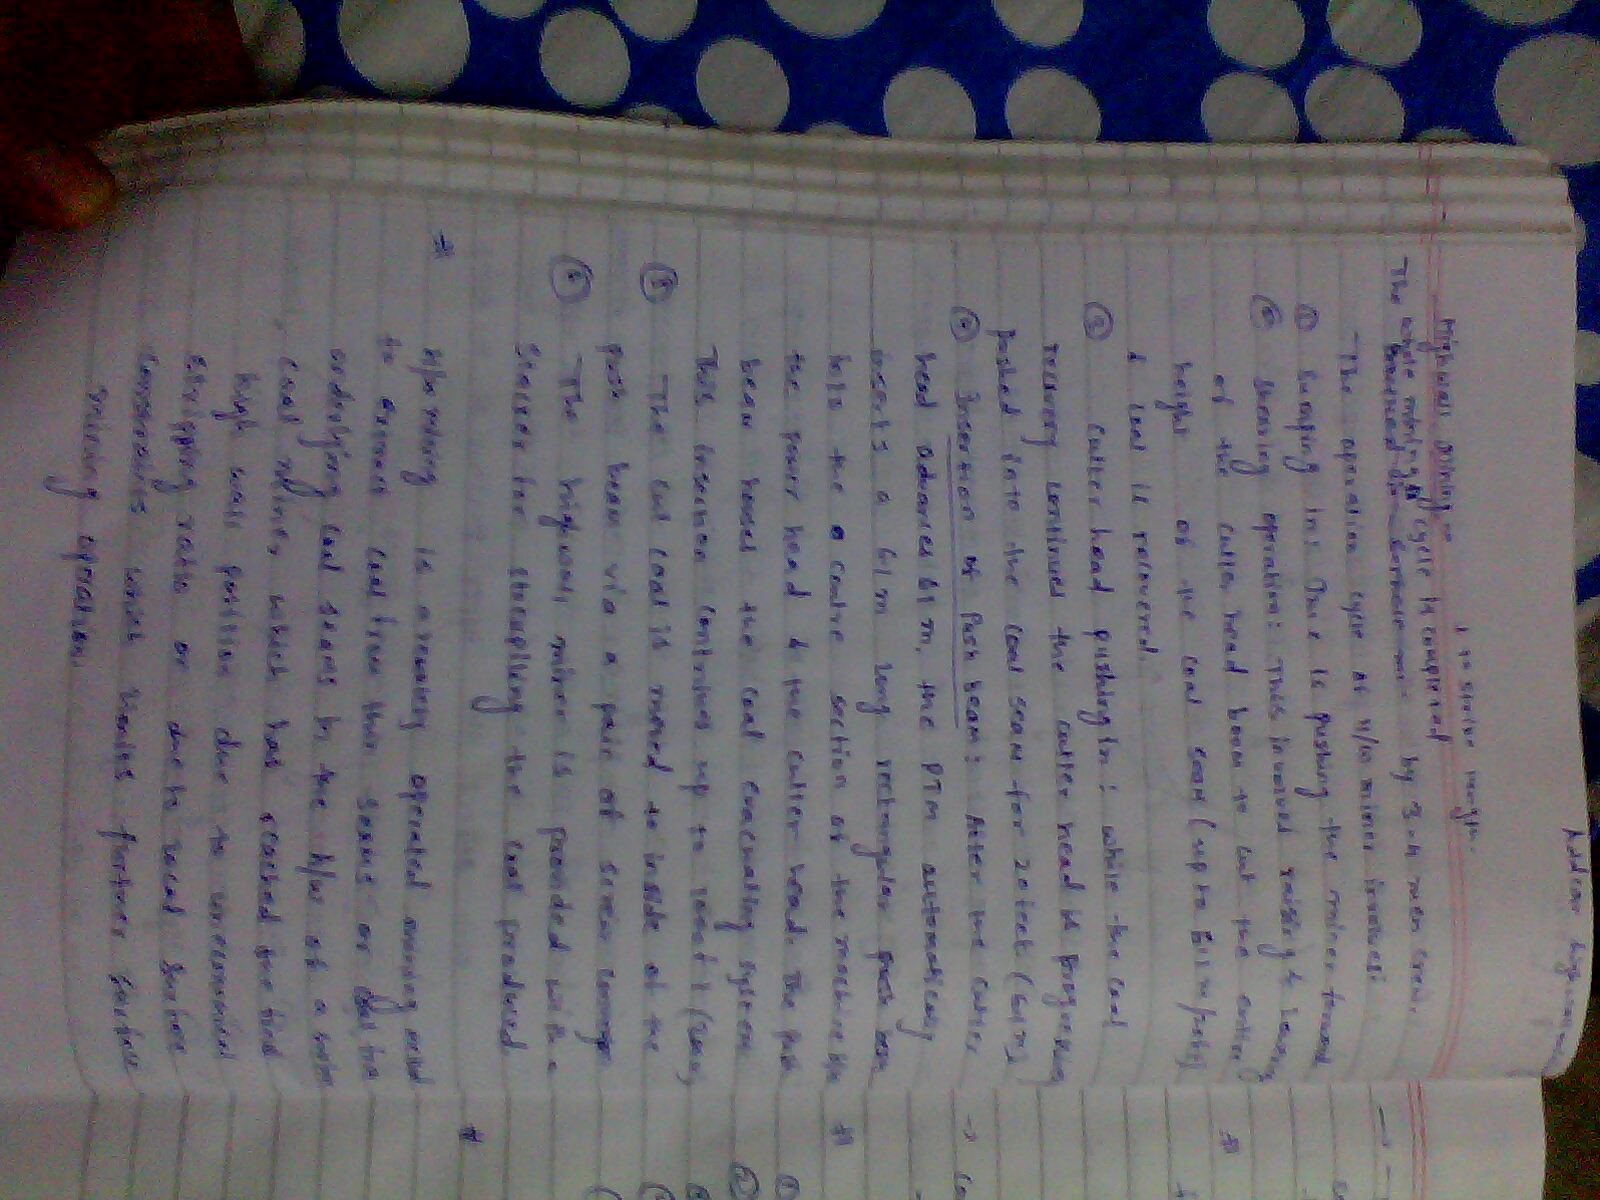 Addcar highwall
1 to strike length.
Highwall mining :-
The whole mining cycle is completed by 3-4 men crew.
The operation cycle of H/W miner involves:
① Sumping in: This is pushing the miner forward
② Shearing operation: This involves raising & lowering
of the cutter head boom to cut the entire
height of the coal seam (up to
& coal is recovered.
③ Cutter head pushing in: while the coal
recovery continues the cutter head is progressively
pushed into the coal seam for 20 feet (6.1m)
④ Insertion of Push beam: After the cutter
head advances 6.1 m, the PTM automatically
inserts a 6.1m long rectangular push beam
into the centre section of the machine b/w
the power head & the cutter head. The push
beam houses the coal evacuating system
This insertion continues up to
⑤ The cut coal is moved to inside of the
push beam via a pair of screw conveyor
⑥ The highwall miner is provided with a
stacker for stockpiling the coal produced.
# H/w mining is a remotely operated mining method
to extract coal from thin seams or
underlying coal seams in the h/w of a
coal mine, which has reached its final
high wall position due to uneconomical
stripping ratio or due to local surface
constraints which limits further surface
mining operation.